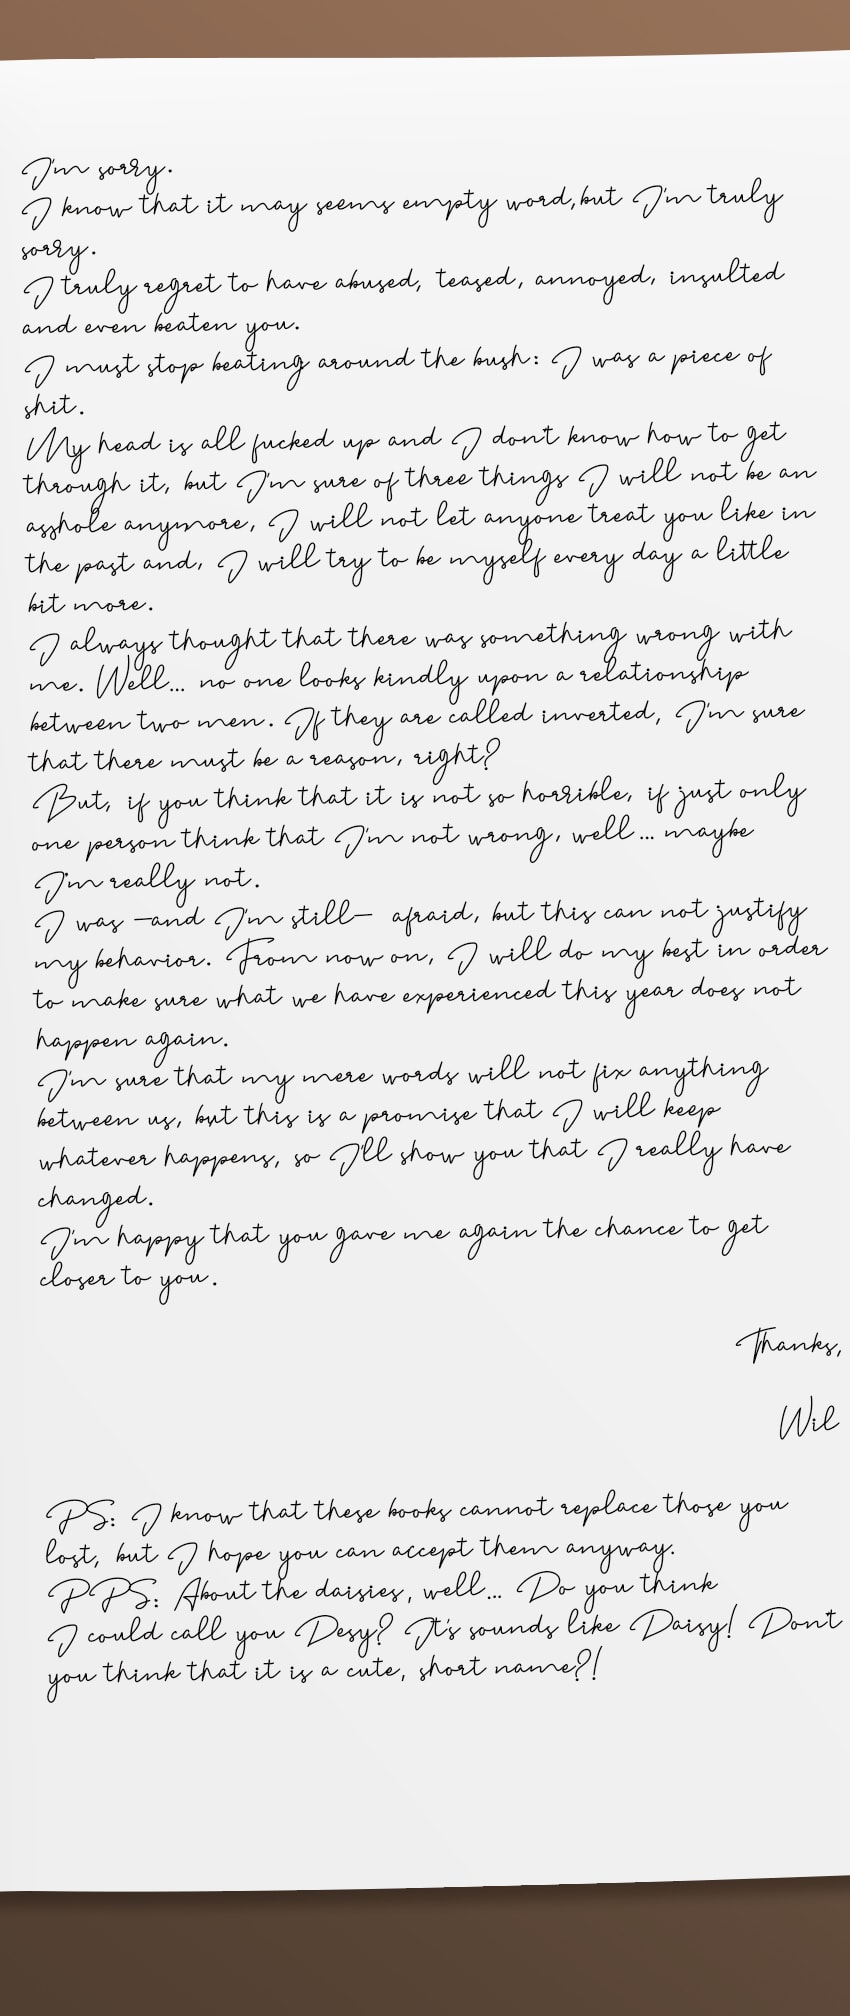 I'm sorry.
I know that it may seems empty word,but I'm truly
sorry.
I truly regret to have abused, teased, annoyed, insulted
and even beaten you.
I must stop beating around the bush: I was a piece of
shit.
My head is all fucked up and I don't know how to get
through it, but I'm sure of three things I will not be an
asshole anymore, I will not let anyone treat you like in
the past and, I will try to be myself every day a little
bit more.
I always thought that there was something wrong with
me. Well... no one looks kindly upon a relationship
between two men. If they are called inverted, I'm sure
that there must be a reason, right?
But, if you think that it is not so horrible, if just only
one person think that I'm not wrong, well... maybe
I'm really not.
I was —and I'm still— afraid, but this can not justify
my behavior. From now on, I will do my best in order
to make sure what we have experienced this year does not
happen again.
I'm sure that my mere words will not fix anything
between us, but this is a promise that I will keep
whatever happens, so I'll show you that I really have
changed.
I'm happy that you gave me again the chance to get
closer to you.
Thanks,
Wil
PS: I know that these books cannot replace those you
lost, but I hope you can accept them anyway.
PPS: About the daisies, well... Do you think
I could call you Desy? It's sounds like Daisy! Don't
you think that it is a cute, short name?!